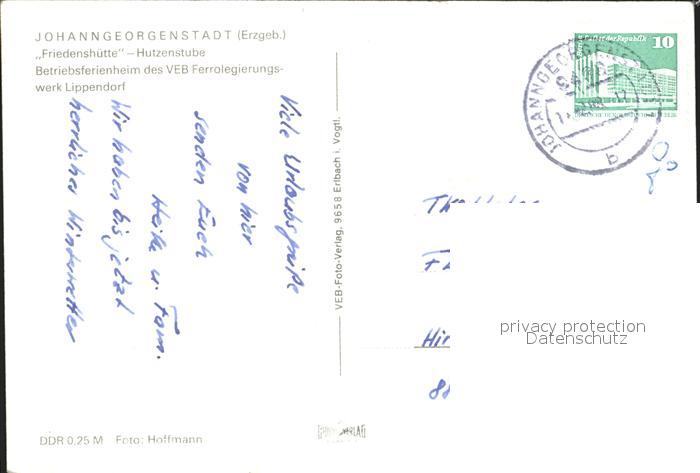 JOHANNGEORGENSTADT (Erzgeb.)
„Friedenshütte" – Hutzenstube
Betriebsferienheim des VEB Ferrolegierungs-
werk Lippendorf
Viele Urlaubsgrüße
von hier
senden Euch
Heike u. Fam.
Wir haben bis jetzt
herrliches Winterwetter
VEB-Foto-Verlag, 9658 Erlbach i. Vogtl.
der Republik 10
JOHANNGEORGENST
b
Hir
privacy protection
Datenschutz
DDR 0,25 M Foto: Hoffmann